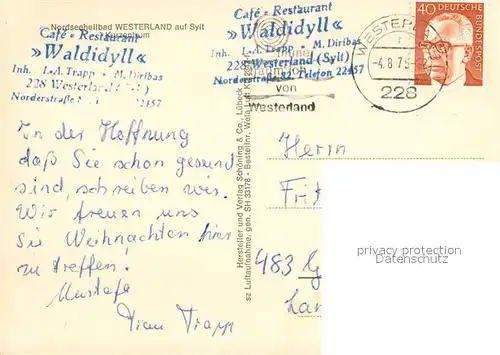 Nordseeheilbad WESTERLAND auf Sylt
Café - Restaurant
»Waldidyll«
Inh. L.-A. Trapp - M. Diribas
228 Westerland
Norderstraße
22457
Café - Restaurant
»Waldidyll«
Inh. L.-A. Trapp - M. Diribas
228 Westerland (Sylt)
Norderstraße 82 Telefon 22457
von
Westerland
WESTERL
-4.8.7
228
40 DEUTSCHE BUNDESPOST
In der Hoffnung
daß Sie schon gesund
sind, schreiben wir.
Wir freuen uns
Sie Weihnachten hier
zu treffen.
Mustafa
Frau Trapp
Hersteller und Verlag Schöning & Co., Lübeck
sz Luftaufnahme. gen. SH 33178 - Bestellnr.
Herrn
Frit
483
privacy protection
Datenschutz